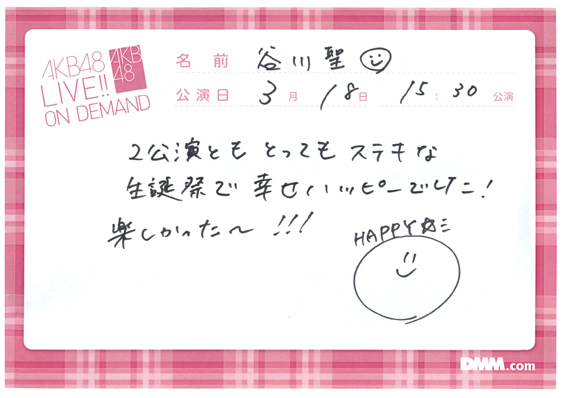 AKB48
LIVE!!
ON DEMAND
AKB
48
名前 谷川聖
公演日 3月 18日 15:30 公演
2公演とも とっても ステキな
生誕祭で 幸せハッピーでした!
楽しかった〜 !!!
HAPPY☆ミ
DMM.com